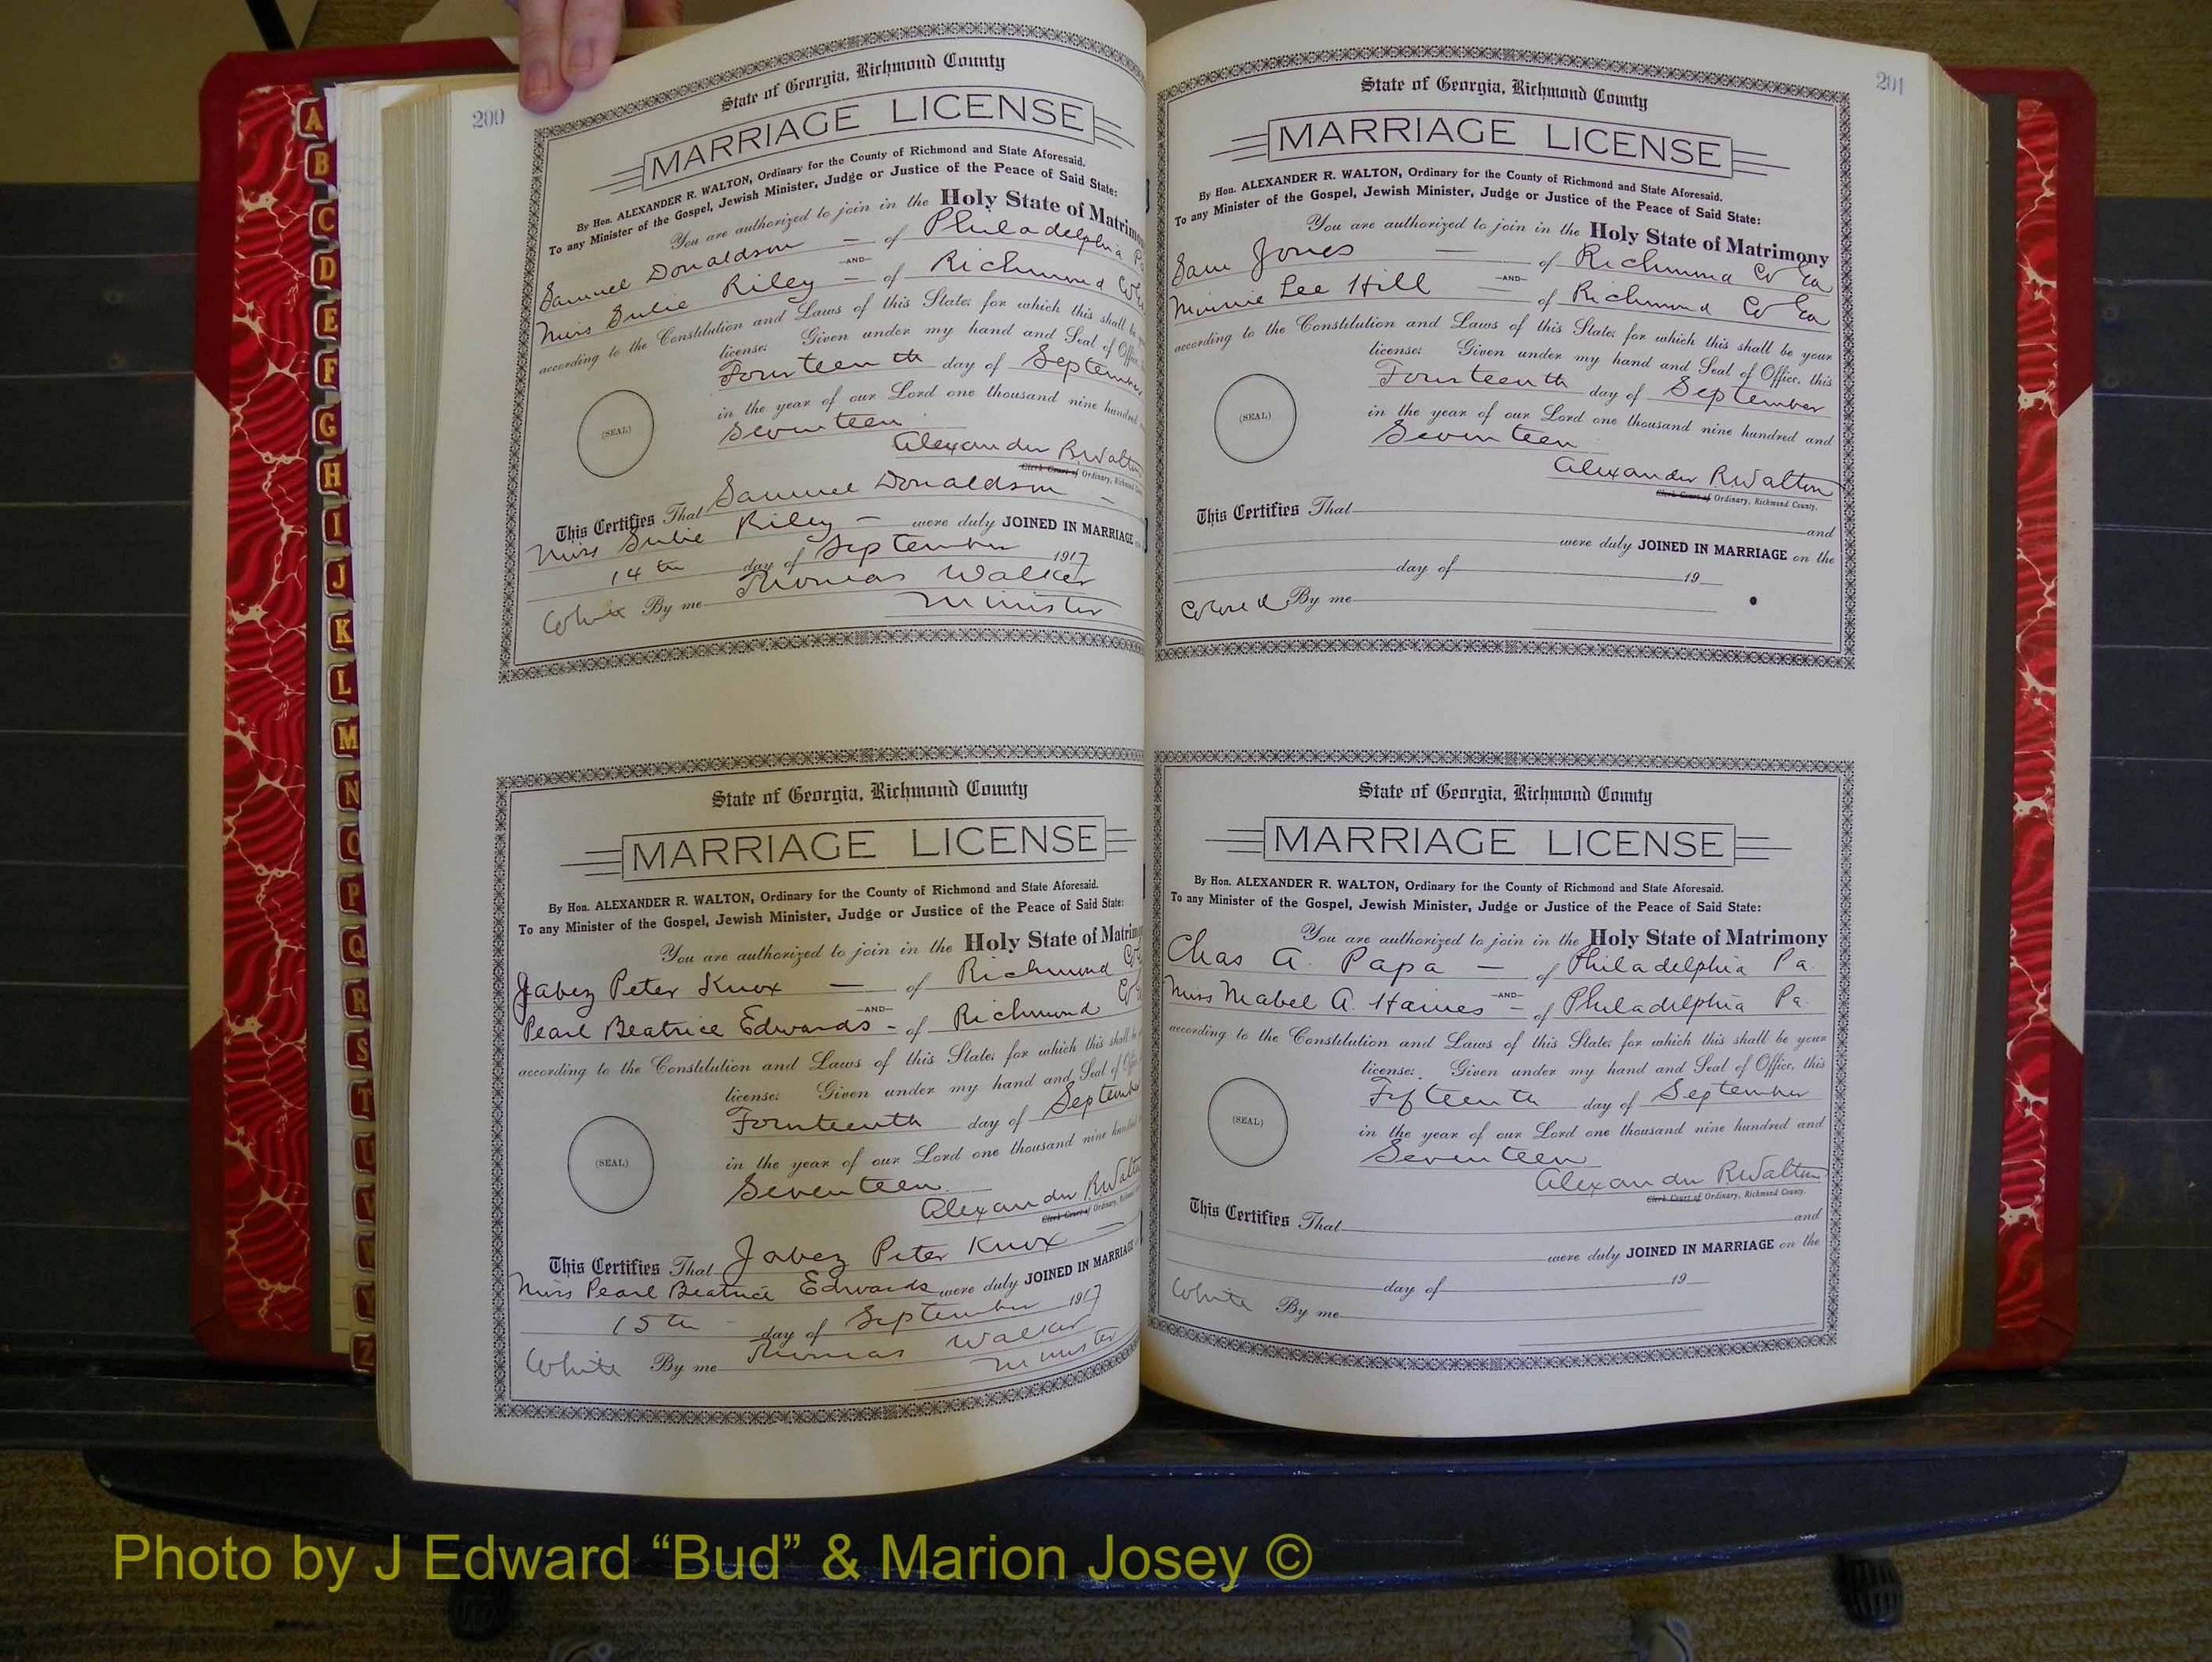 A
B
C
D
E
F
G
H
I
J
K
L
M
N
O
P
Q
R
S
T
U
V
Z
200
State of Georgia, Richmond County
MARRIAGE LICENSE
By Hon. ALEXANDER R. WALTON, Ordinary for the County of Richmond and State Aforesaid.
To any Minister of the Gospel, Jewish Minister, Judge or Justice of the Peace of Said State:
You are authorized to join in the Holy State of Matrimony
Samuel Donaldson — of Philadelphia Pa
—AND—
Miss Sulie Riley — of Richmond Co
according to the Constitution and Laws of this State; for which this shall be
license. Given under my hand and Seal of Office,
Fourteenth day of September
in the year of our Lord one thousand nine hundred
Seventeen
Alexander R Walton
Clerk Court of Ordinary, Richmond
This Certifies That Samuel Donaldson —
Miss Sulie Riley — were duly JOINED IN MARRIAGE
14th day of September 1917
White By me Thomas Walker
Minister
State of Georgia, Richmond County
MARRIAGE LICENSE
By Hon. ALEXANDER R. WALTON, Ordinary for the County of Richmond and State Aforesaid.
To any Minister of the Gospel, Jewish Minister, Judge or Justice of the Peace of Said State:
You are authorized to join in the Holy State of
Jabez Peter Knox — of Richmond
—AND—
Pearl Beatrice Edwards - of Richmond
according to the Constitution and Laws of this State; for which this shall be
license. Given under my hand and Seal of
Fourteenth day of September
(SEAL)
in the year of our Lord one thousand nine hundred
Seventeen
Alexander R Walton
Clerk Court of Ordinary,
This Certifies That Jabez Peter Knox —
Miss Pearl Beatrice Edwards were duly JOINED IN MARRIAGE
15th - day of September 1917
White By me Thomas Walker
Minister
201
State of Georgia, Richmond County
MARRIAGE LICENSE
By Hon. ALEXANDER R. WALTON, Ordinary for the County of Richmond and State Aforesaid.
To any Minister of the Gospel, Jewish Minister, Judge or Justice of the Peace of Said State:
You are authorized to join in the Holy State of Matrimony
Sam Jones — of Richmond Co Ga
—AND—
Minnie Lee Hill — of Richmond Co Ga
according to the Constitution and Laws of this State; for which this shall be your
license. Given under my hand and Seal of Office, this
Fourteenth day of September
(SEAL)
in the year of our Lord one thousand nine hundred and
Seventeen
Alexander R Walton
Clerk Court of Ordinary, Richmond County.
This Certifies That
and
were duly JOINED IN MARRIAGE on the
day of 19
Colored By me
State of Georgia, Richmond County
MARRIAGE LICENSE
By Hon. ALEXANDER R. WALTON, Ordinary for the County of Richmond and State Aforesaid.
To any Minister of the Gospel, Jewish Minister, Judge or Justice of the Peace of Said State:
You are authorized to join in the Holy State of Matrimony
Chas A. Papa — of Philadelphia Pa.
—AND—
Miss Mabel A. Haines — of Philadelphia Pa.
according to the Constitution and Laws of this State; for which this shall be your
license. Given under my hand and Seal of Office, this
Fifteenth day of September
(SEAL)
in the year of our Lord one thousand nine hundred and
Seventeen
Alexander R Walton
Clerk Court of Ordinary, Richmond County.
This Certifies That
and
were duly JOINED IN MARRIAGE on the
day of 19
White By me
Photo by J Edward “Bud” & Marion Josey ©